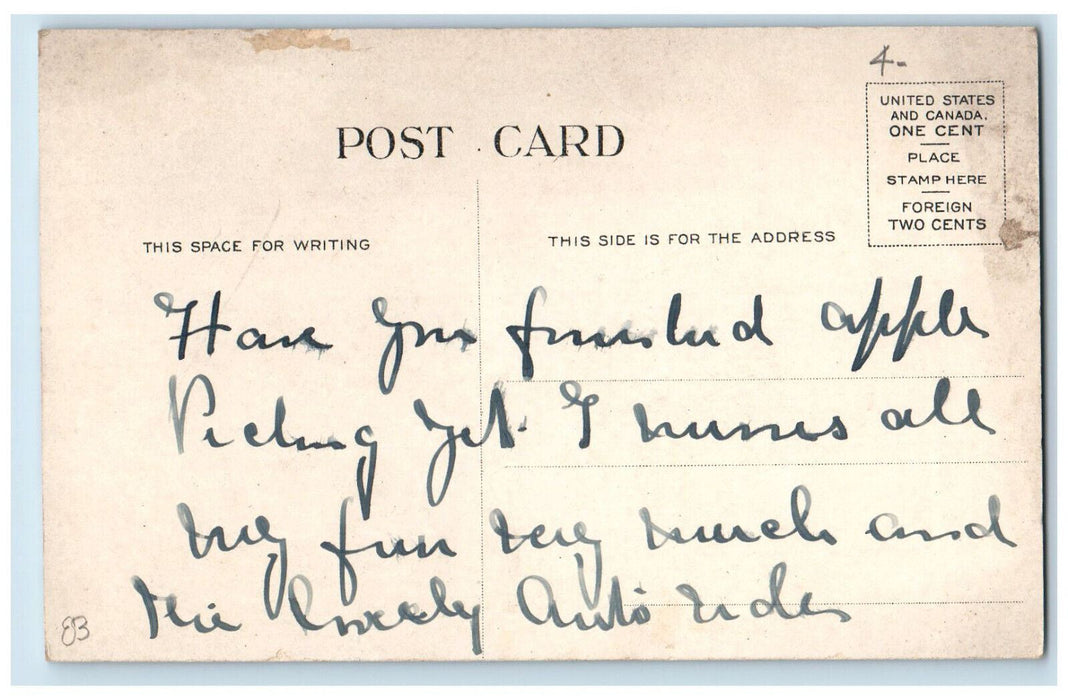 4-
UNITED STATES
AND CANADA.
ONE CENT
PLACE
STAMP HERE
FOREIGN
TWO CENTS
POST CARD
THIS SPACE FOR WRITING
THIS SIDE IS FOR THE ADDRESS
Have you finished apple
Picking yet. I misses all
my fun very much and
the lovely Auto rides
83